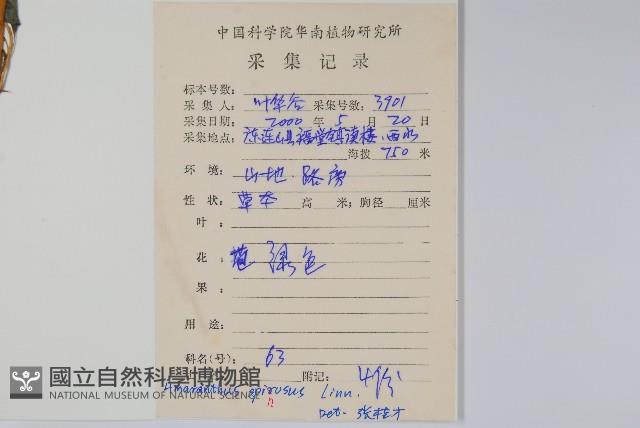 中国科学院华南植物研究所
采集记录
标本号数：
采集人：叶华谷 采集号数：3901
采集日期：2000年5月20日
采集地点：连山县福堂镇 西水
海拨 750 米
环境：山地．路旁
性状：草本 高 米；胸径 厘米
叶：
花：绿色
果：
用途：
科名(号)：63
附记：4份
Amaranthus spinosus Linn.
Det. 张桂才
國立自然科學博物館
NATIONAL MUSEUM OF NATURAL SCIENCE